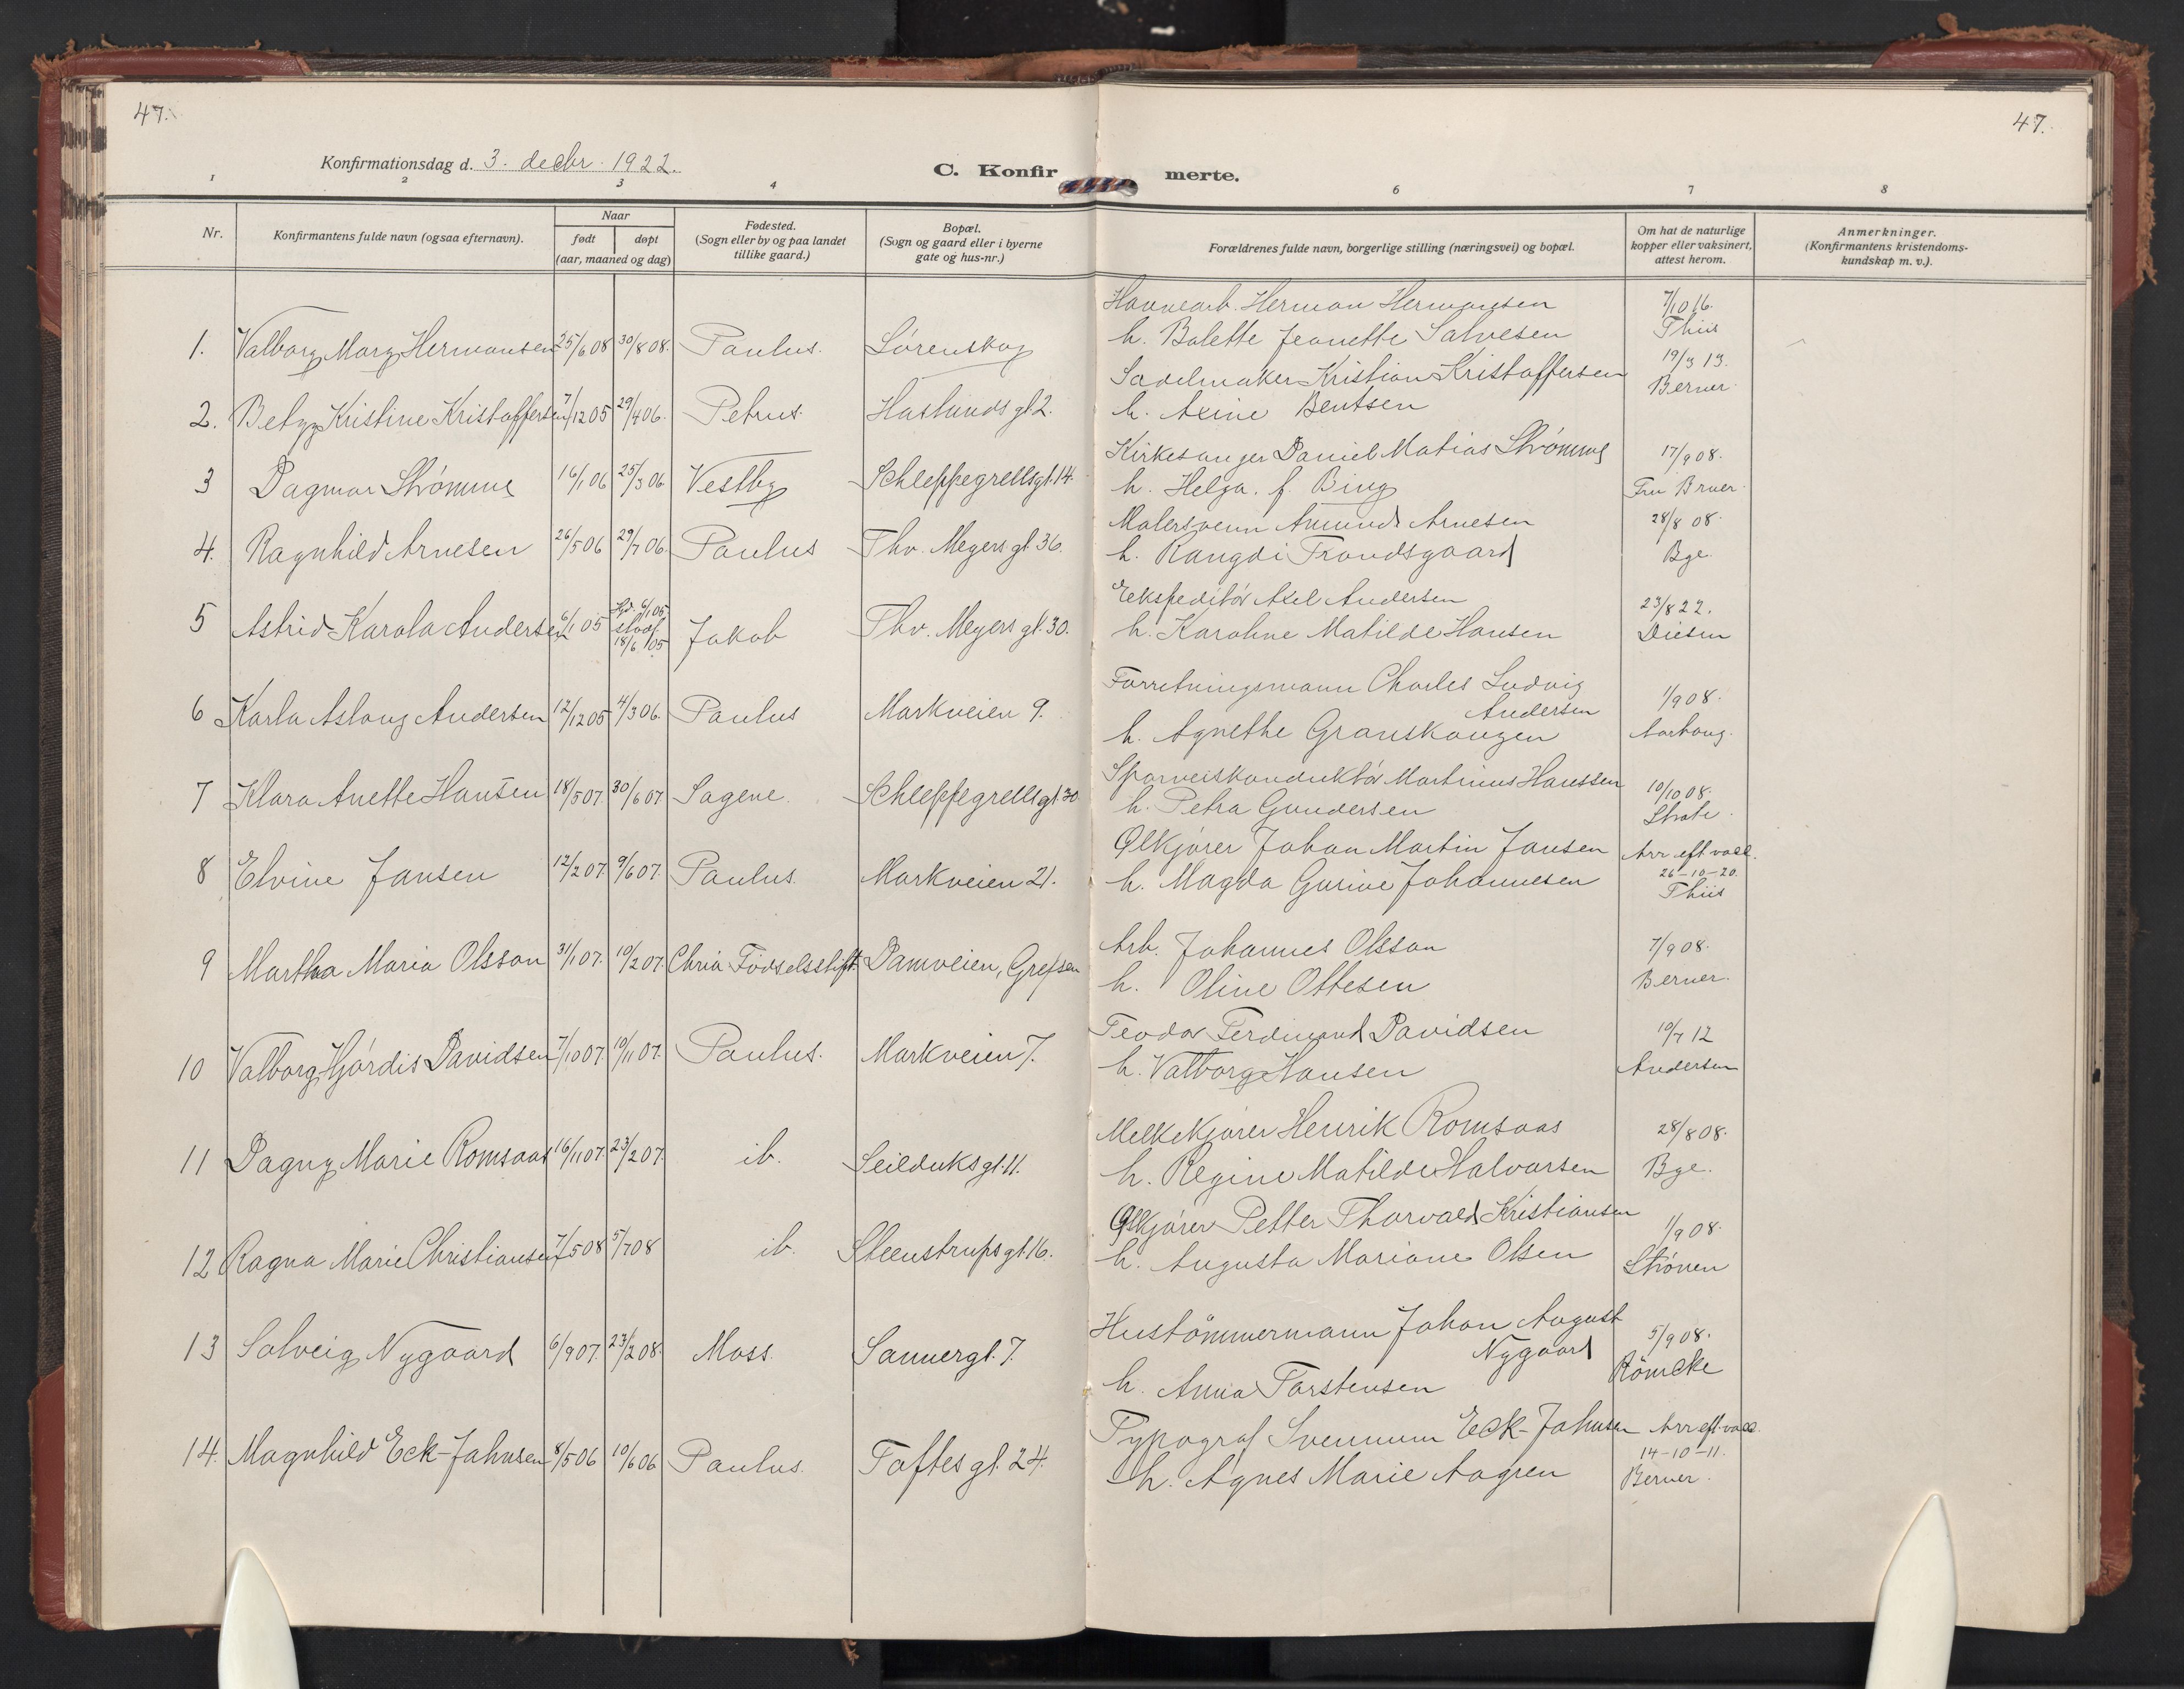 47.
47.
Konfirmationsdag d. 3. decbr. 1922.
C. Konfir merte.
1 2 3 4 6 7 8
Nr.
Konfirmantens fulde navn (ogsaa efternavn).
Naar
født døpt
(aar, maaned og dag)
Fødested.
(Sogn eller by og paa landet
tillike gaard.)
Bopæl.
(Sogn og gaard eller i byerne
gate og hus-nr.)
Forældrenes fulde navn, borgerlige stilling (næringsvei) og bopæl.
Om hat de naturlige
kopper eller vaksinert,
attest herom.
Anmerkninger.
(Konfirmantens kristendoms-
kundskap m. v.).
Havnearb. Herman Hermansen 7/10 16.
1. Valborg Mary Hermansen 25/6 08 30/8 08. Paulus. Lørenskog h. Bolette Jeanette Salvesen Thiis
Sadelmaker Kristian Kristoffersen 19/3 13.
2. Betzy Kristine Kristoffersen 7/12 05 29/4 06. Petrus. Haslunds gt. 2. h. Axine Bentsen Berner.
Kirkesanger Daniel Matias Strømme 17/9 08.
3 Dagmar Strømme 16/1 06 25/3 06 Vestby Schleppegrellsgt. 14. h. Helga. f. Bing Fru Bruer.
Malersvenn Amund Arnesen 28/8 08.
4. Ragnhild Arnesen 26/5 06 29/7 06. Paulus Thv. Meyers gt. 36. h. Rangdi Trondsgaard Bge.
Ekspeditør Axel Andersen 23/8 22.
5 Astrid Karola Andersen 6/1 05 Hjd. 6/1 05 stadf. 18/6 05 Jakob Thv. Meyers gt. 30. h. Karoline Matilde Hansen Diesen
Forretningsmann Charles Ludvig
Andersen 1/9 08.
6 Karla Aslaug Andersen 12/12 05 4/3 06. Paulus Markveien 9. h. Agnethe Granskougen Aarhaug.
Sporveiskonduktör Martinius Hanssen 10/10 08.
7 Klara Anette Hansen 18/5 07. 30/6 07 Sagene. Schleppegrells gt. 30 h. Petra Gundersen
Ølkjører Johan Martin Jansen Arr eft vacc.
26-10-20.
8 Elvine Jansen 12/2 07. 9/6 07. Paulus. Markveien 21. h. Magda Gurine Johannesen Thiis
Arb. Johannes Olsson 7/9 08.
9 Martha Maria Olsson 31/1 07. 10/2 07. Chria Fødselsstift. Damveien, Grefsen h. Oline Ottesen Berner.
Teodor Ferdinand Davidsen 10/7 12
10 Valborg Hjørdis Davidsen 7/10 07. 10/11 07. Paulus. Markveien 7. h. Valborg Hansen Andersen
Melkekjører Henrik Romsaas 28/8 08.
11 Dagny Marie Romsaas 16/11 07. 23/2 07. ib. Seilduksgt. 11. h. Regine Matilde Halvorsen Bge.
Ølkjører Petter Thorvald Kristiansen 1/9 08.
12 Ragna Marie Christiansen 7/5 08 5/7 08 ib. Steenstrups gt. 16. h. Augusta Mariane Olsen Strønen
Hustömmermann Johan August
Nygaard 5/9 08.
13 Solveig Nygaard 6/9 07. 23/2 08. Moss. Sannergt. 7. h. Anna Torstensen Römcke
Typograf Svennum Eck-Jahnsen Arr eft vacc.
14-10-11.
14. Magnhild Eck-Jahnsen 8/5 06 10/6 06 Paulus. Toftes gt. 24. h. Agnes Marie Aagren Berner.